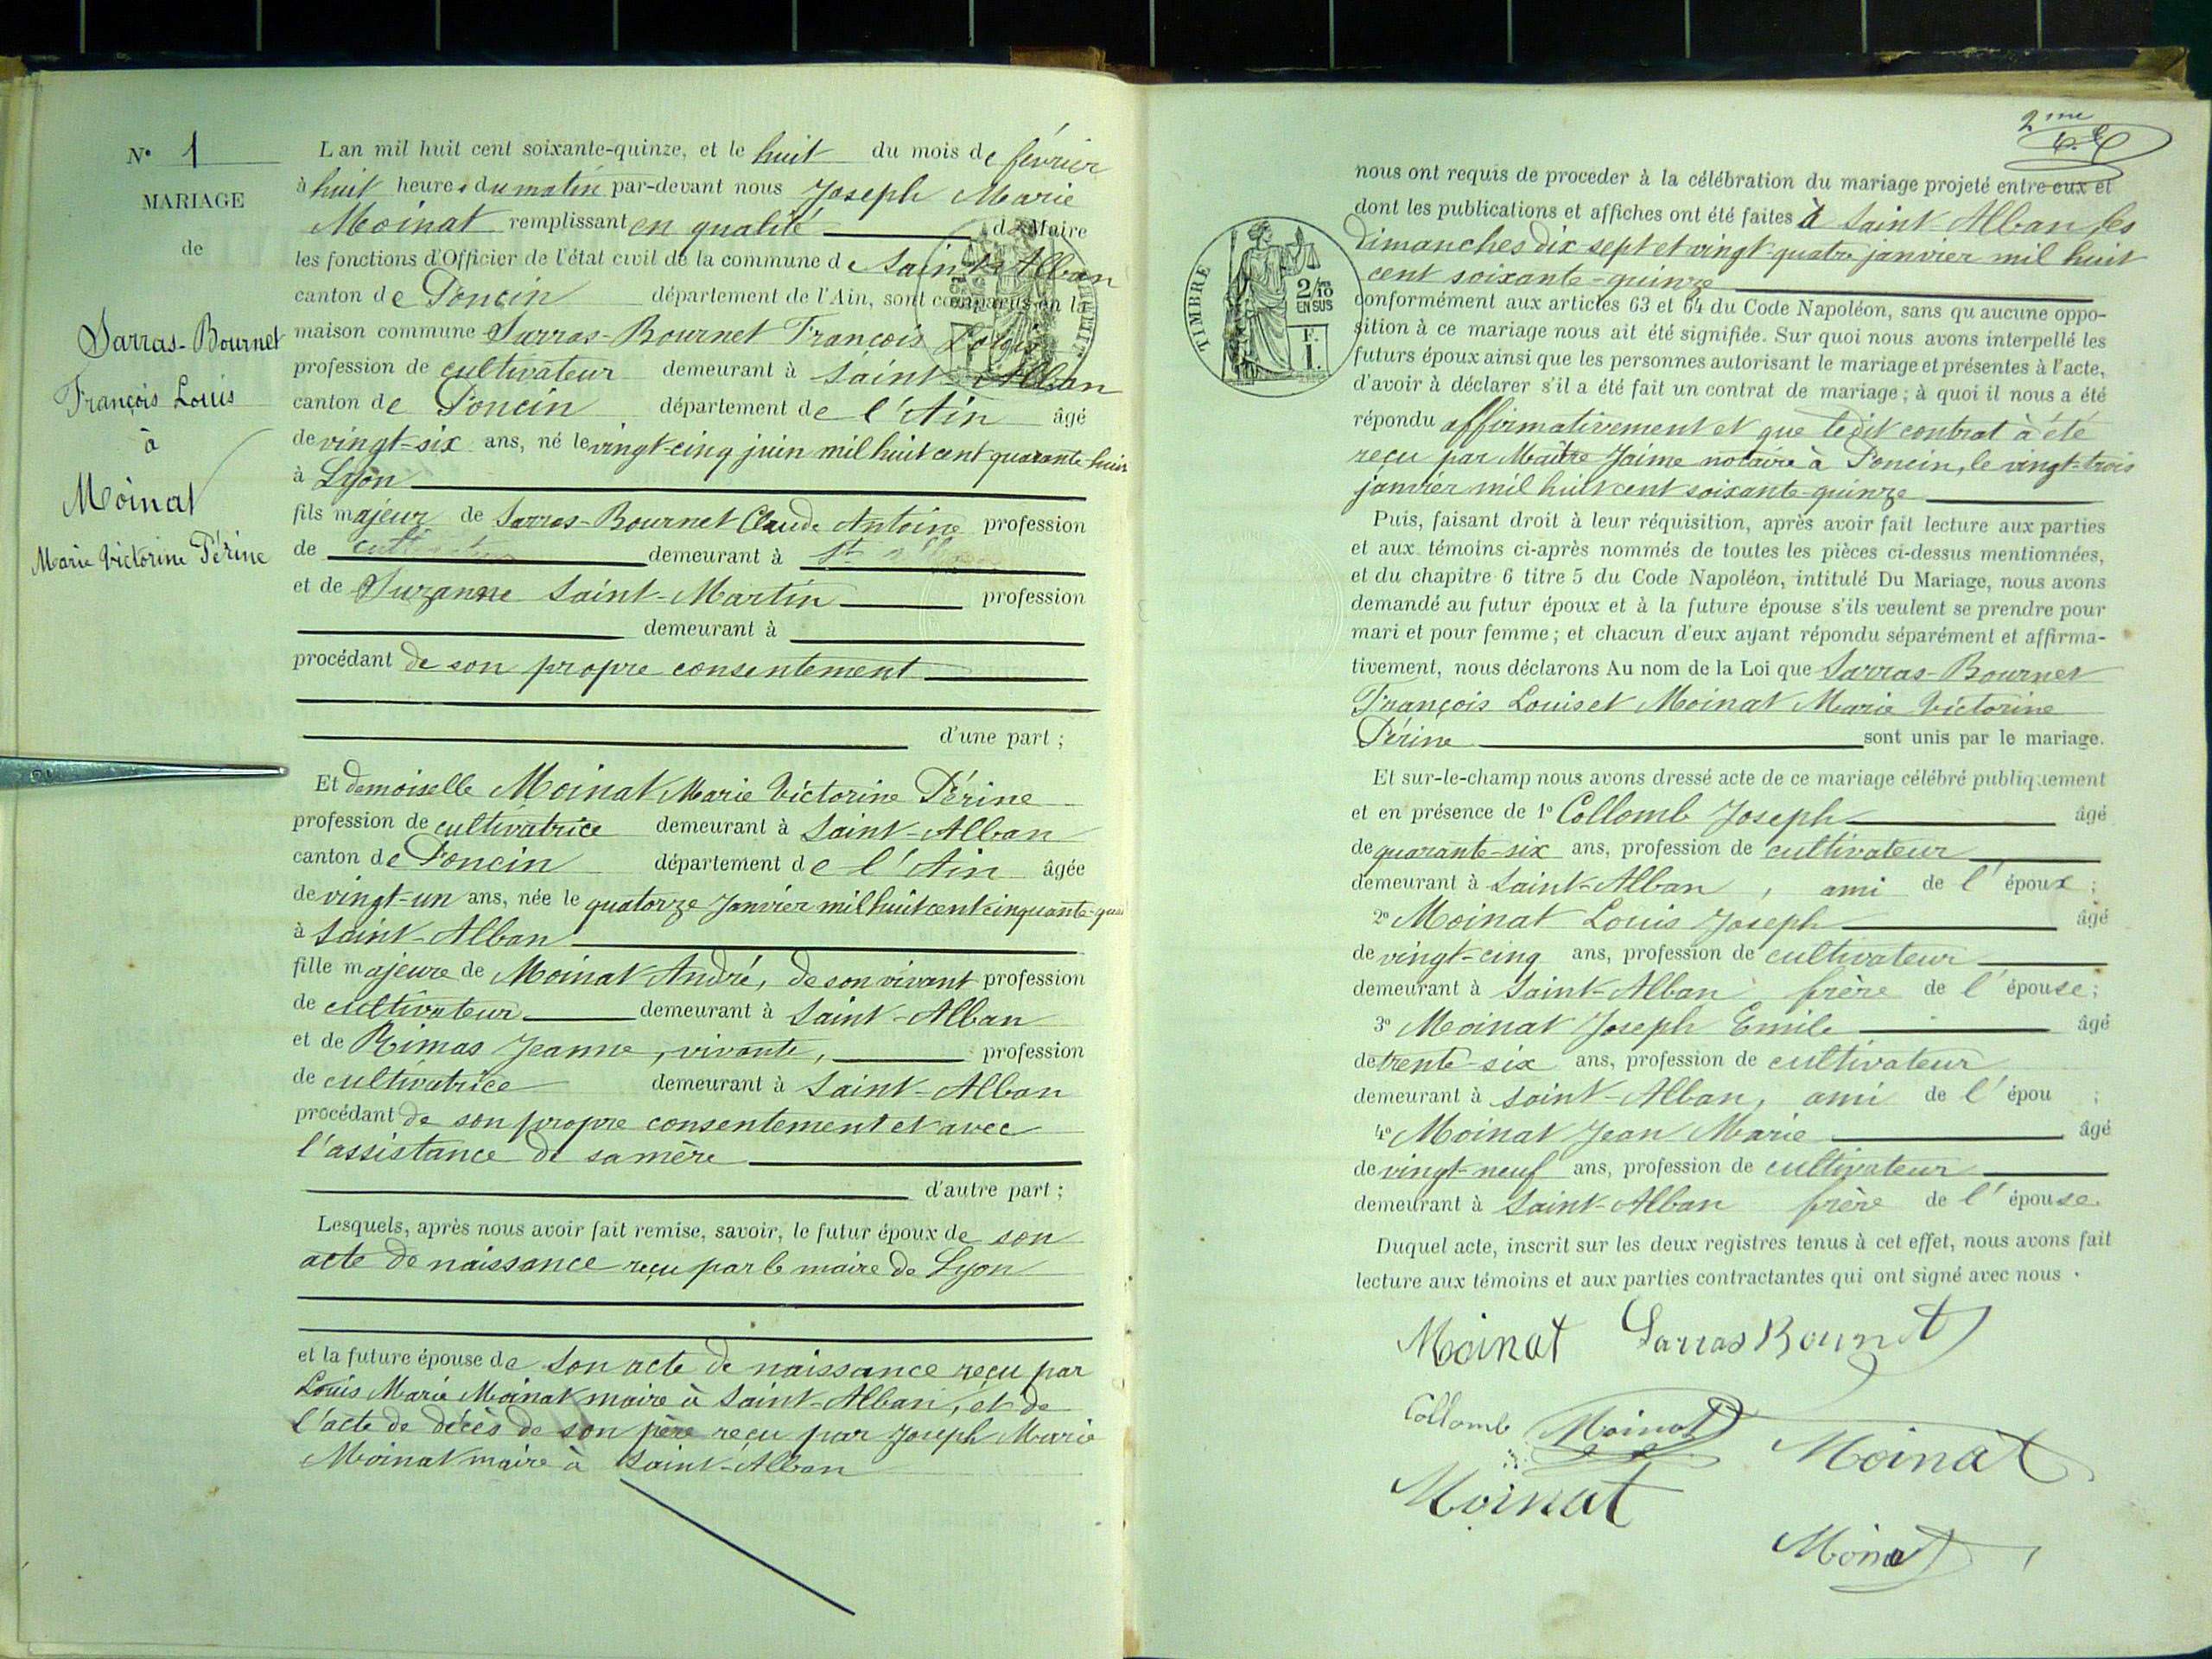 N° 1
MARIAGE
de
Sarras-Bournet
François Louis
à
Moinat
Marie Victorine Périne
L'an mil huit cent soixante-quinze, et le huit du mois de février
à huit heures du matin par-devant nous Joseph Marie
Moinat remplissant en qualité de Maire
les fonctions d'Officier de l'état civil de la commune de Saint-Alban
canton de Poncin département de l'Ain, sont comparus en la
maison commune Sarras-Bournet François Louis
profession de cultivateur demeurant à Saint-Alban
canton de Poncin département de l'Ain âgé
de vingt-six ans, né le vingt-cinq juin mil huit cent quarante-huit
à Lyon
fils majeur de Sarras-Bournet Claude Antoine profession
de demeurant à St
et de Suzanne Saint-Martin profession
demeurant à
procédant de son propre consentement
d'une part ;
Et demoiselle Moinat Marie Victorine Périne
profession de cultivatrice demeurant à Saint-Alban
canton de Poncin département de l'Ain âgée
de vingt-un ans, née le quatorze Janvier mil huit cent cinquante-qua
à Saint-Alban
fille majeure de Moinat André, de son vivant profession
de cultivateur demeurant à Saint-Alban
et de Rimas Jeanne, vivante, profession
de cultivatrice demeurant à Saint-Alban
procédant de son propre consentement et avec
l'assistance de sa mère
d'autre part ;
Lesquels, après nous avoir fait remise, savoir, le futur époux de son
acte de naissance reçu par le maire de Lyon
et la future épouse de son acte de naissance reçu par
Louis Marie Moinat maire à Saint-Alban, et de
l'acte de décès de son père reçu par Joseph Marie
Moinat maire à Saint-Alban
2me
nous ont requis de proceder à la célébration du mariage projeté entre eux et
dont les publications et affiches ont été faites à Saint-Alban les
Dimanches dix-sept et vingt-quatre janvier mil huit
cent soixante-quinze
conformément aux articles 63 et 64 du Code Napoléon, sans qu'aucune oppo-
sition à ce mariage nous ait été signifiée. Sur quoi nous avons interpellé les
futurs époux ainsi que les personnes autorisant le mariage et présentes à l'acte,
d'avoir à déclarer s'il a été fait un contrat de mariage ; à quoi il nous a été
répondu affirmativement et que ledit contrat à été
reçu par Maître Jaime notaire à Poncin, le vingt-trois
janvier mil huit cent soixante-quinze
Puis, faisant droit à leur réquisition, après avoir fait lecture aux parties
et aux témoins ci-après nommés de toutes les pièces ci-dessus mentionnées,
et du chapitre 6 titre 5 du Code Napoléon, intitulé Du Mariage, nous avons
demandé au futur époux et à la future épouse s'ils veulent se prendre pour
mari et pour femme ; et chacun d'eux ayant répondu séparément et affirma-
tivement, nous déclarons Au nom de la Loi que Sarras-Bournet
François Louis et Moinat Marie Victorine
Périne sont unis par le mariage.
Et sur-le-champ nous avons dressé acte de ce mariage célébré publiquement
et en présence de 1° Collomb Joseph âgé
de quarante-six ans, profession de cultivateur
demeurant à Saint-Alban, ami de l'époux ;
2° Moinat Louis Joseph âgé
de vingt-cinq ans, profession de cultivateur
demeurant à Saint-Alban frère de l'épouse ;
3° Moinat Joseph Emile âgé
de trente-six ans, profession de cultivateur
demeurant à Saint-Alban, ami de l'épou ;
4° Moinat Jean Marie âgé
de vingt-neuf ans, profession de cultivateur
demeurant à Saint-Alban frère de l'épouse
Duquel acte, inscrit sur les deux registres tenus à cet effet, nous avons fait
lecture aux témoins et aux parties contractantes qui ont signé avec nous .
Moinat Sarras Bournet
Collomb Moinat Moinat
Moinat
Moinat
TIMBRE
2/10
EN SUS
F.
1.